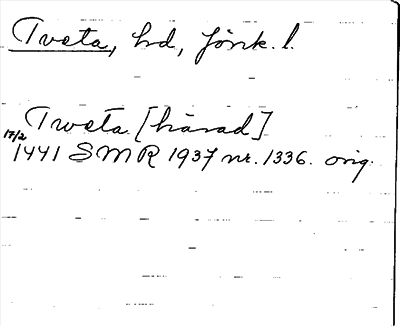 Tveta, hd, Jönk. l.
Tweta [härad]
17/2
1441 SMR 1937 nr. 1336. orig.